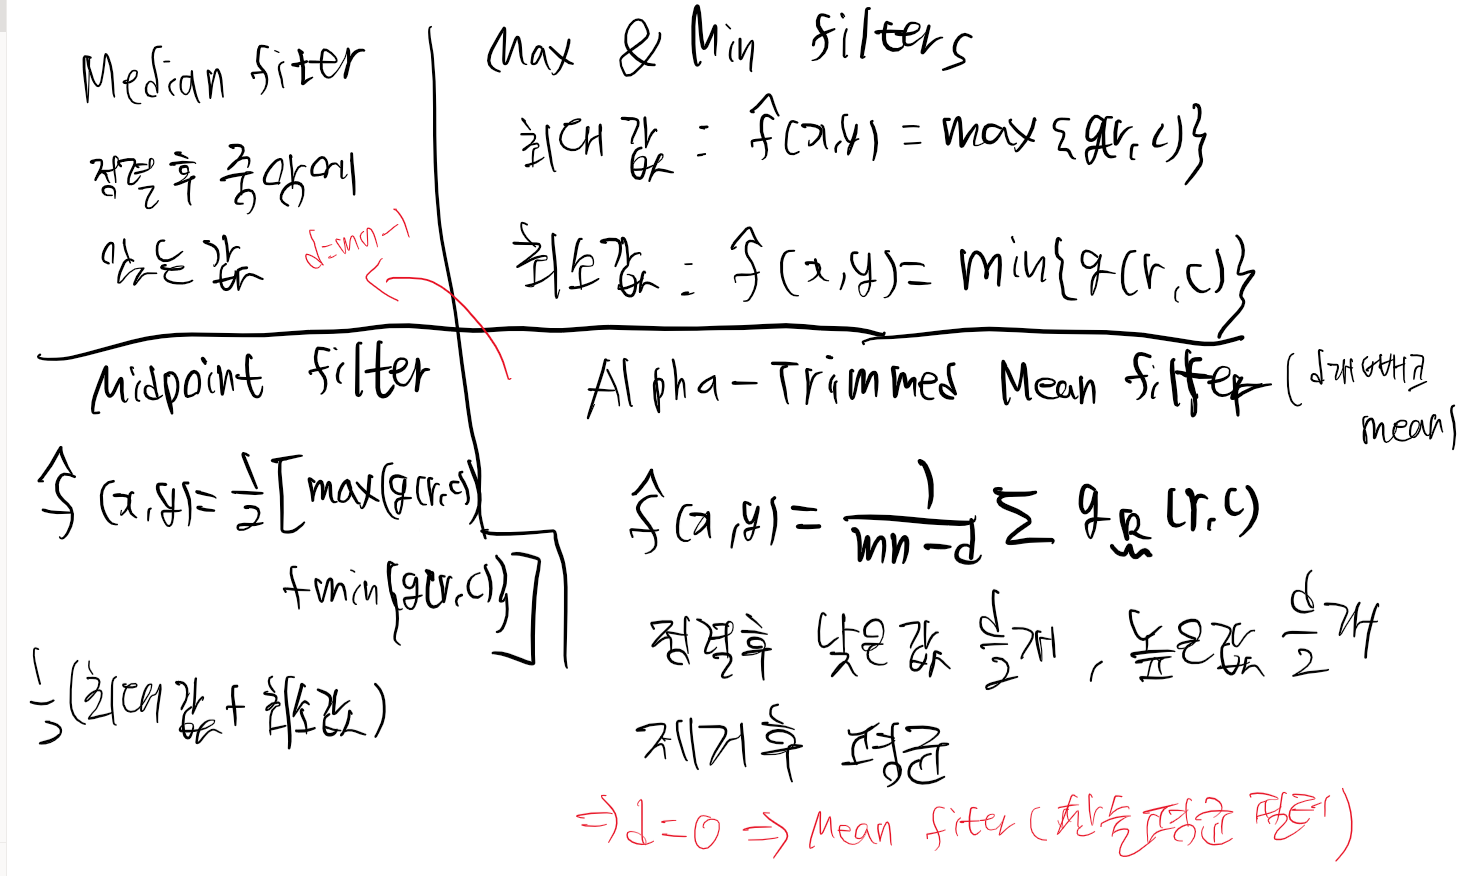 Median fiter
정렬후 중앙에
있는 값
d=mn-1
Max & Min filters
최대값 : f̂(x,y) = max{g(r,c)}
최소값 : f̂(x,y) = min{g(r,c)}
Midpoint filter
f̂(x,y)=1/2[max(g(r,c)
+min{g(r,c)}]
1/2(최대값+최소값)
Alpha-Trimmed Mean filter (d개빼고
mean)
f̂(x,y) = 1/(mn-d) Σ g_R(r,c)
정렬후 낮은값 d/2개, 높은값 d/2개
제거후 평균
⇒d=0 ⇒ Mean fiter (산술평균 필터)